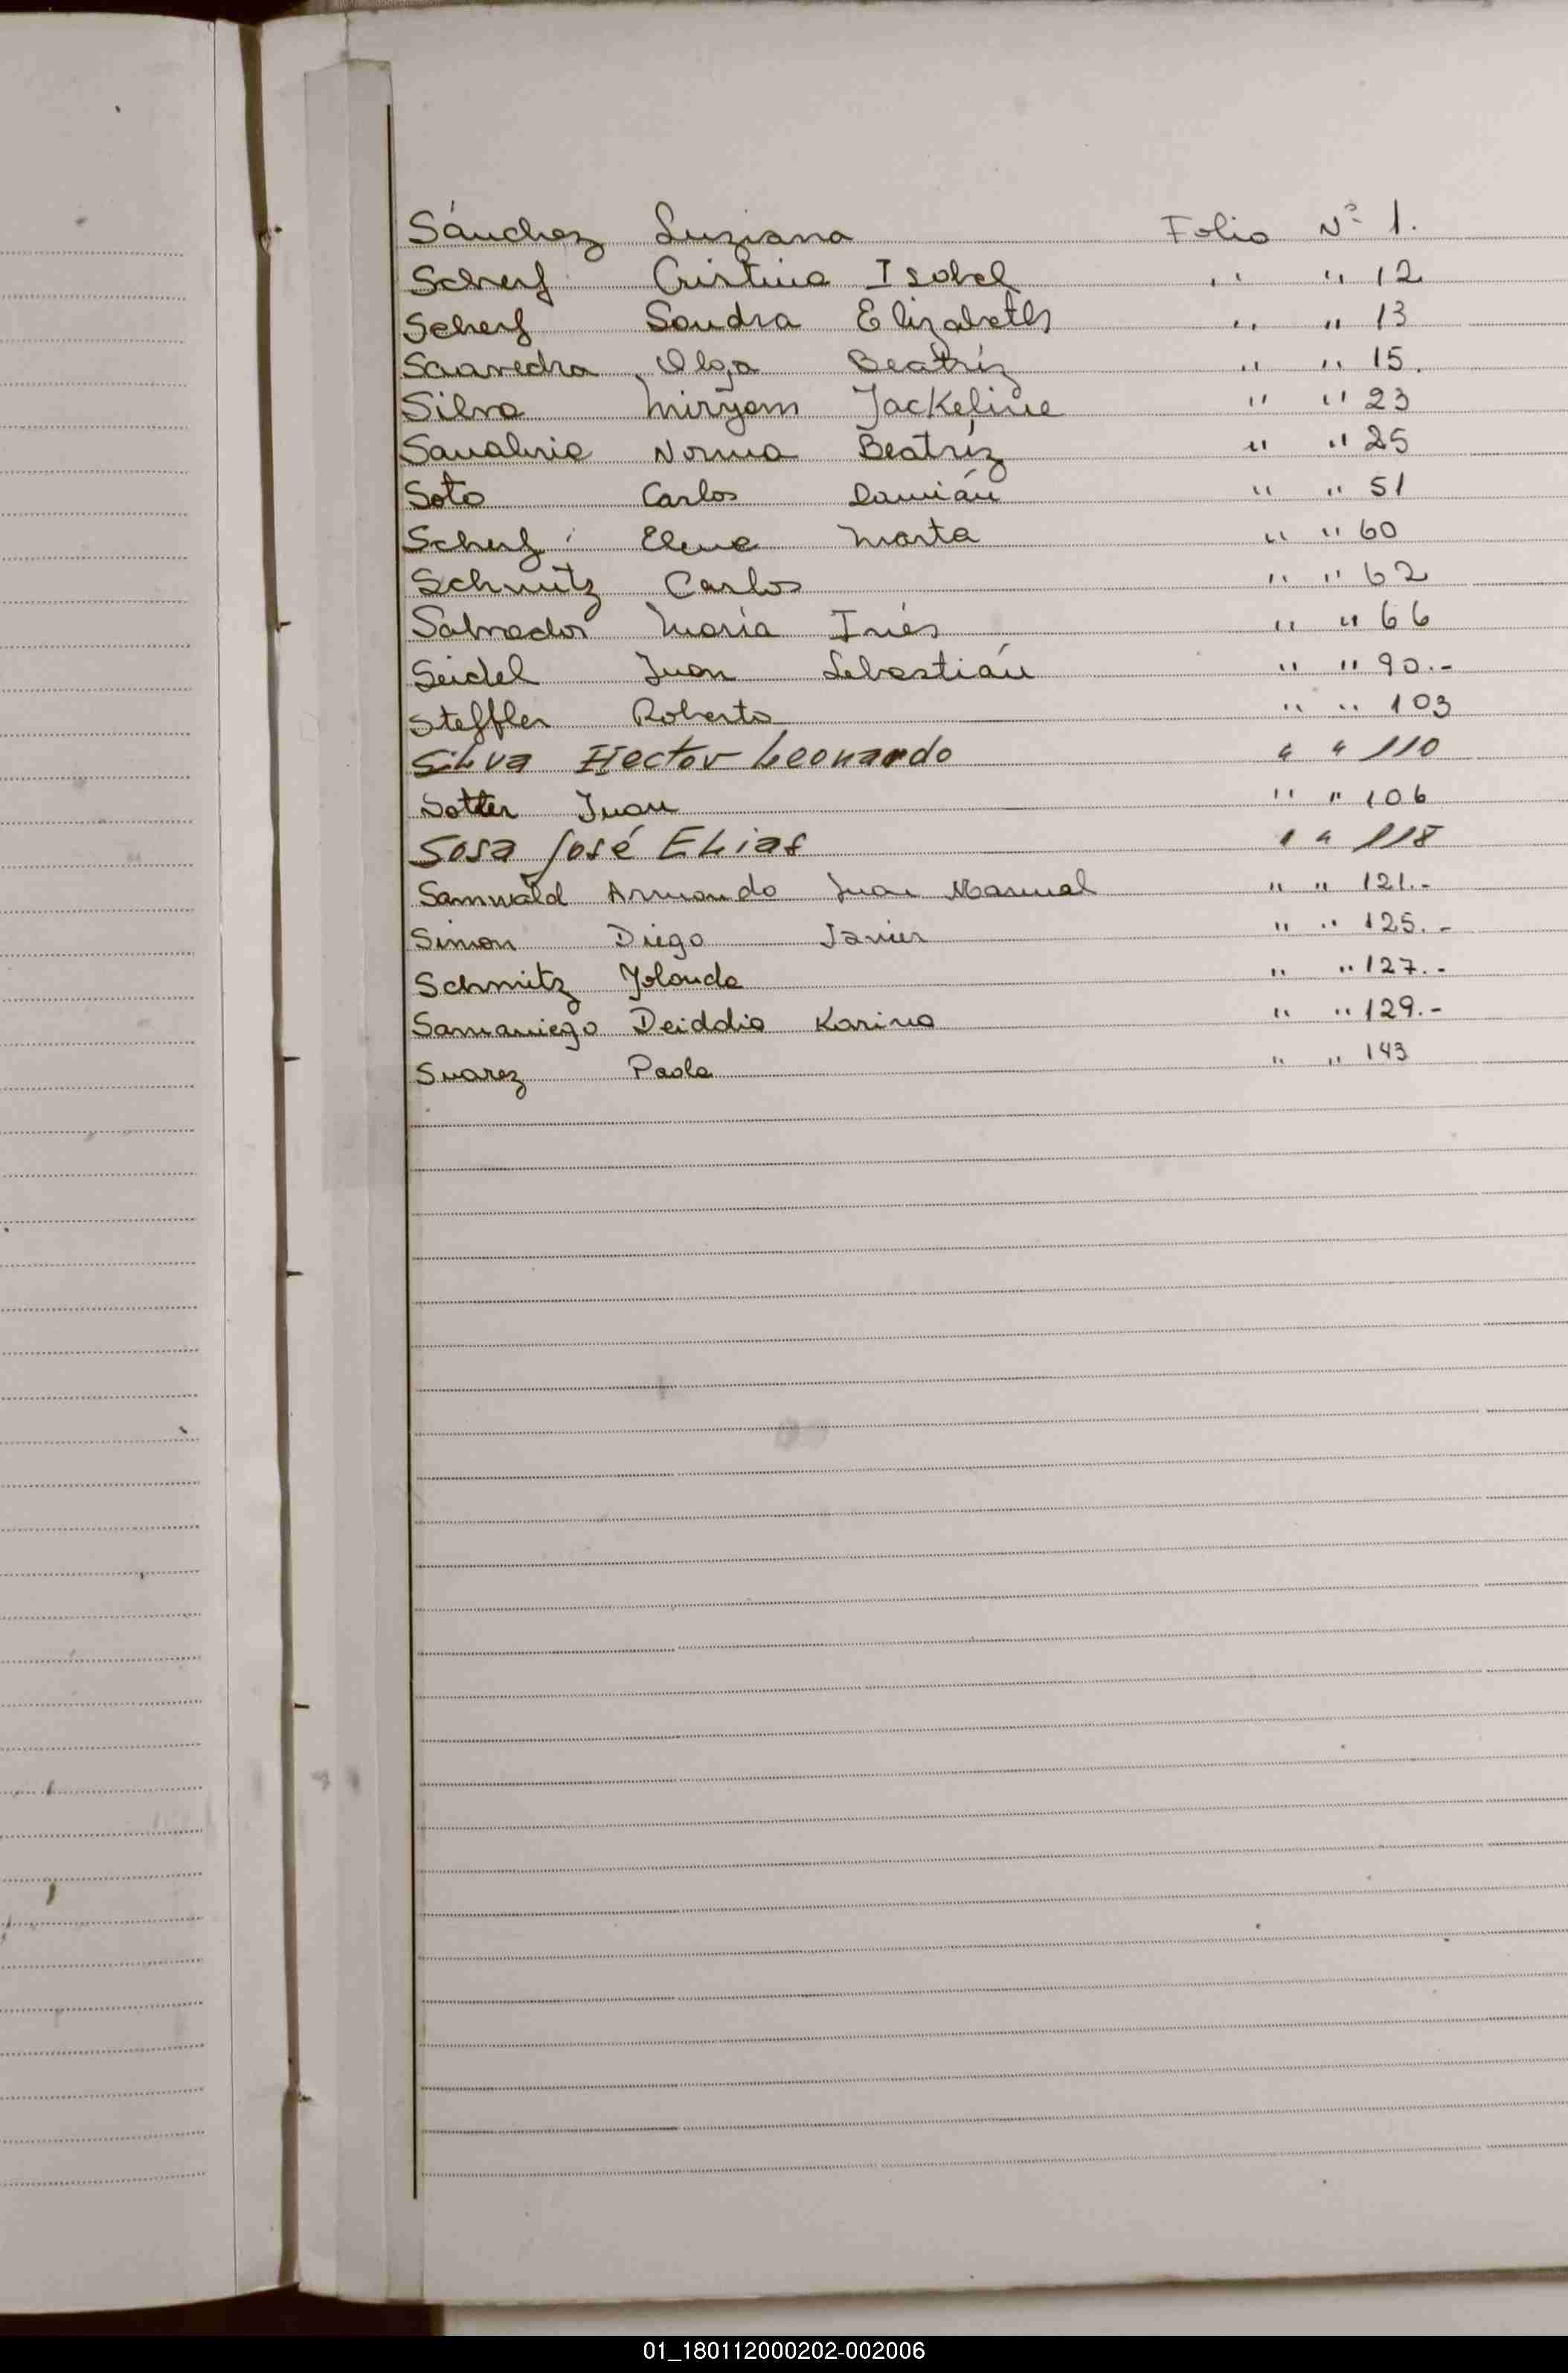 Sánchez Luziana Folio Nº 1.
Scherf Cristina Isabel " " 12
Scherf Sandra Elizabeth " " 13
Saavedra Olga Beatríz " " 15.
Silva Miryam Jackeline " " 23
Sanabria Norma Beatríz " " 25
Soto Carlos Damián " " 51
Scherf Elena Marta " " 60
Schmitz Carlos " " 62
Salvador María Inés " " 66
Seidel Juan Sebastián " " 90.-
Steffler Roberto " " 103
Silva Hector Leonardo " " 110
Sotter Juan " " 106
Sosa José Elias " " 118
Samwald Armando Juan Manuel " " 121.-
Simon Diego Javier " " 125.-
Schmitz Yolanda " " 127.-
Samaniego Deiddia Karina " " 129.-
Suarez Paola " " 143
01_180112000202-002006